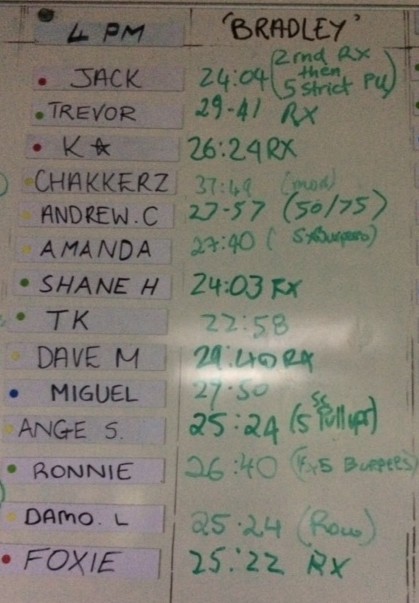 4 PM 'BRADLEY'
JACK 24:04 (2nd RX then 5 strict PU)
TREVOR 29-41 RX
K☆ 26:24 RX
CHAKKERZ 37:49 (mod)
ANDREW.C 27-57 (50/75)
AMANDA 27:40 ( 5xBurpees)
SHANE H 24:03 RX
TK 22:58
DAVE M 29:40 RX
MIGUEL 29:50
ANGE S. 25:24 (5 Pullups)
RONNIE 26:40 5 BURPEES)
DAMO. L 25:24 (Row)
FOXIE 25:22 RX